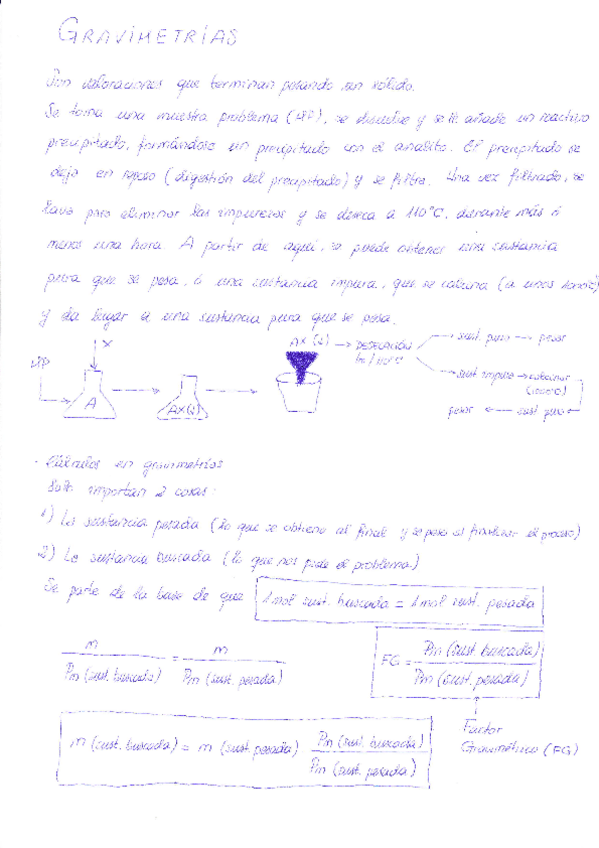 GRAVIMETRÍAS
Son valoraciones que terminan pesando un sólido.
Se toma una muestra problema (MP), se disuelve y se le añade un reactivo
precipitado, formándose un precipitado con el analito. El precipitado se
deja en reposo (digestión del precipitado) y se filtra. Una vez filtrado, se
lava para eliminar las impurezas y se deseca a 110°C, durante más o
menos una hora. A partir de aquí, se puede obtener una sustancia
pura que se pesa, o una sustancia impura, que se calcina (a unos 1000°C)
y da lugar a una sustancia pura que se pesa.
MP
X
A
AX(s)
AX (s) → DESECACIÓN
1h/110°C
sust. pura → pesar
sust. impura → calcinar
(1000°C)
pesar ← sust. pura
- Cálculos en gravimetrías
Solo importan 2 cosas:
1) La sustancia pesada (lo que se obtiene al final y se pesa al finalizar el proceso)
2) La sustancia buscada (lo que nos pide el problema)
Se parte de la base de que 1 mol sust. buscada = 1 mol sust. pesada
m / Pm (sust. buscada) = m / Pm (sust. pesada)
FG = Pm (sust. buscada) / Pm (sust. pesada)
Factor
Gravimétrico (FG)
m (sust. buscada) = m (sust. pesada) Pm (sust. buscada) / Pm (sust. pesada)